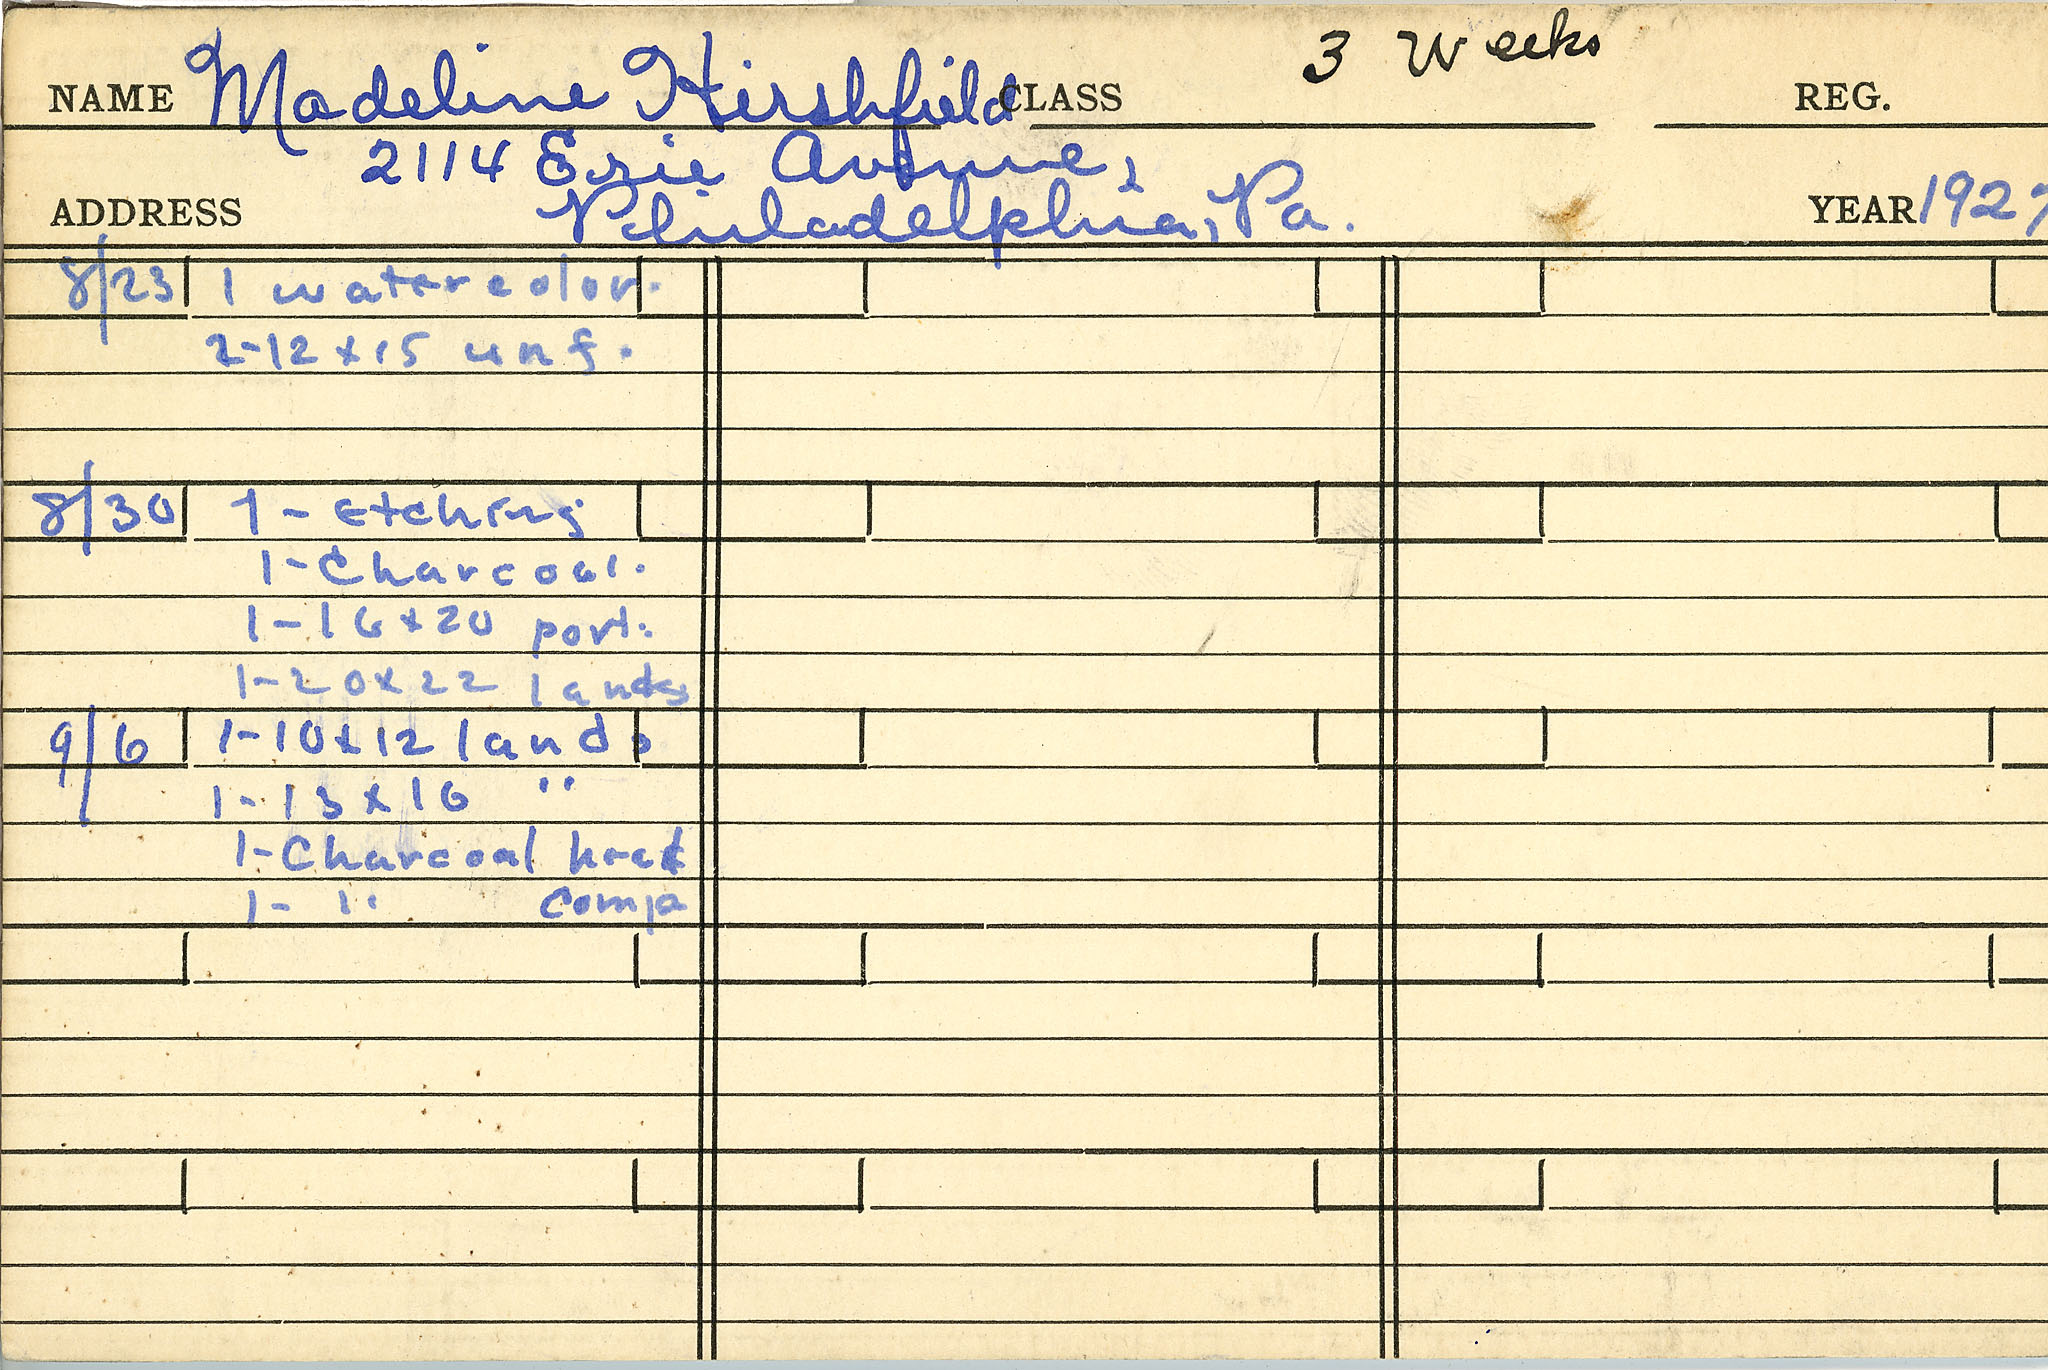 3 Weeks
NAME Madeline Hirshfield CLASS REG.
2114 Erie Avenue,
ADDRESS Philadelphia, Pa. YEAR 1927
8/23 1 watercolor.
2-12x15 unf.
8/30 1 - Etching
1-Charcoal.
1-16x20 port.
1-20x22 lands
9/6 1-10x12 lands
1-13x16 "
1-Charcoal head
1- " Comp